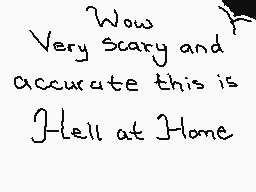 Wow
Very scary and
accurate this is
Hell at Home